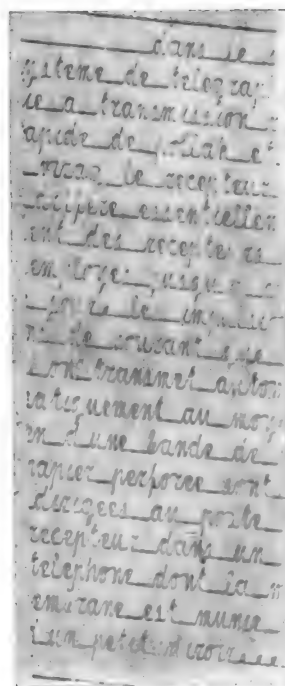 dans le s
ysteme de telegrap
ie a transmission r
apide de pollak et
virag le recepteur
differe essentiellem
ent des recepteurs
employes jusqu
les impulsio
ns de courant que
l'on transmet autom
atiquement au moy
en d'une bande de
papier perforee sont
dirigees au poste
recepteur dans un
telephone dont la m
embrane est munie
d'un petit miroir